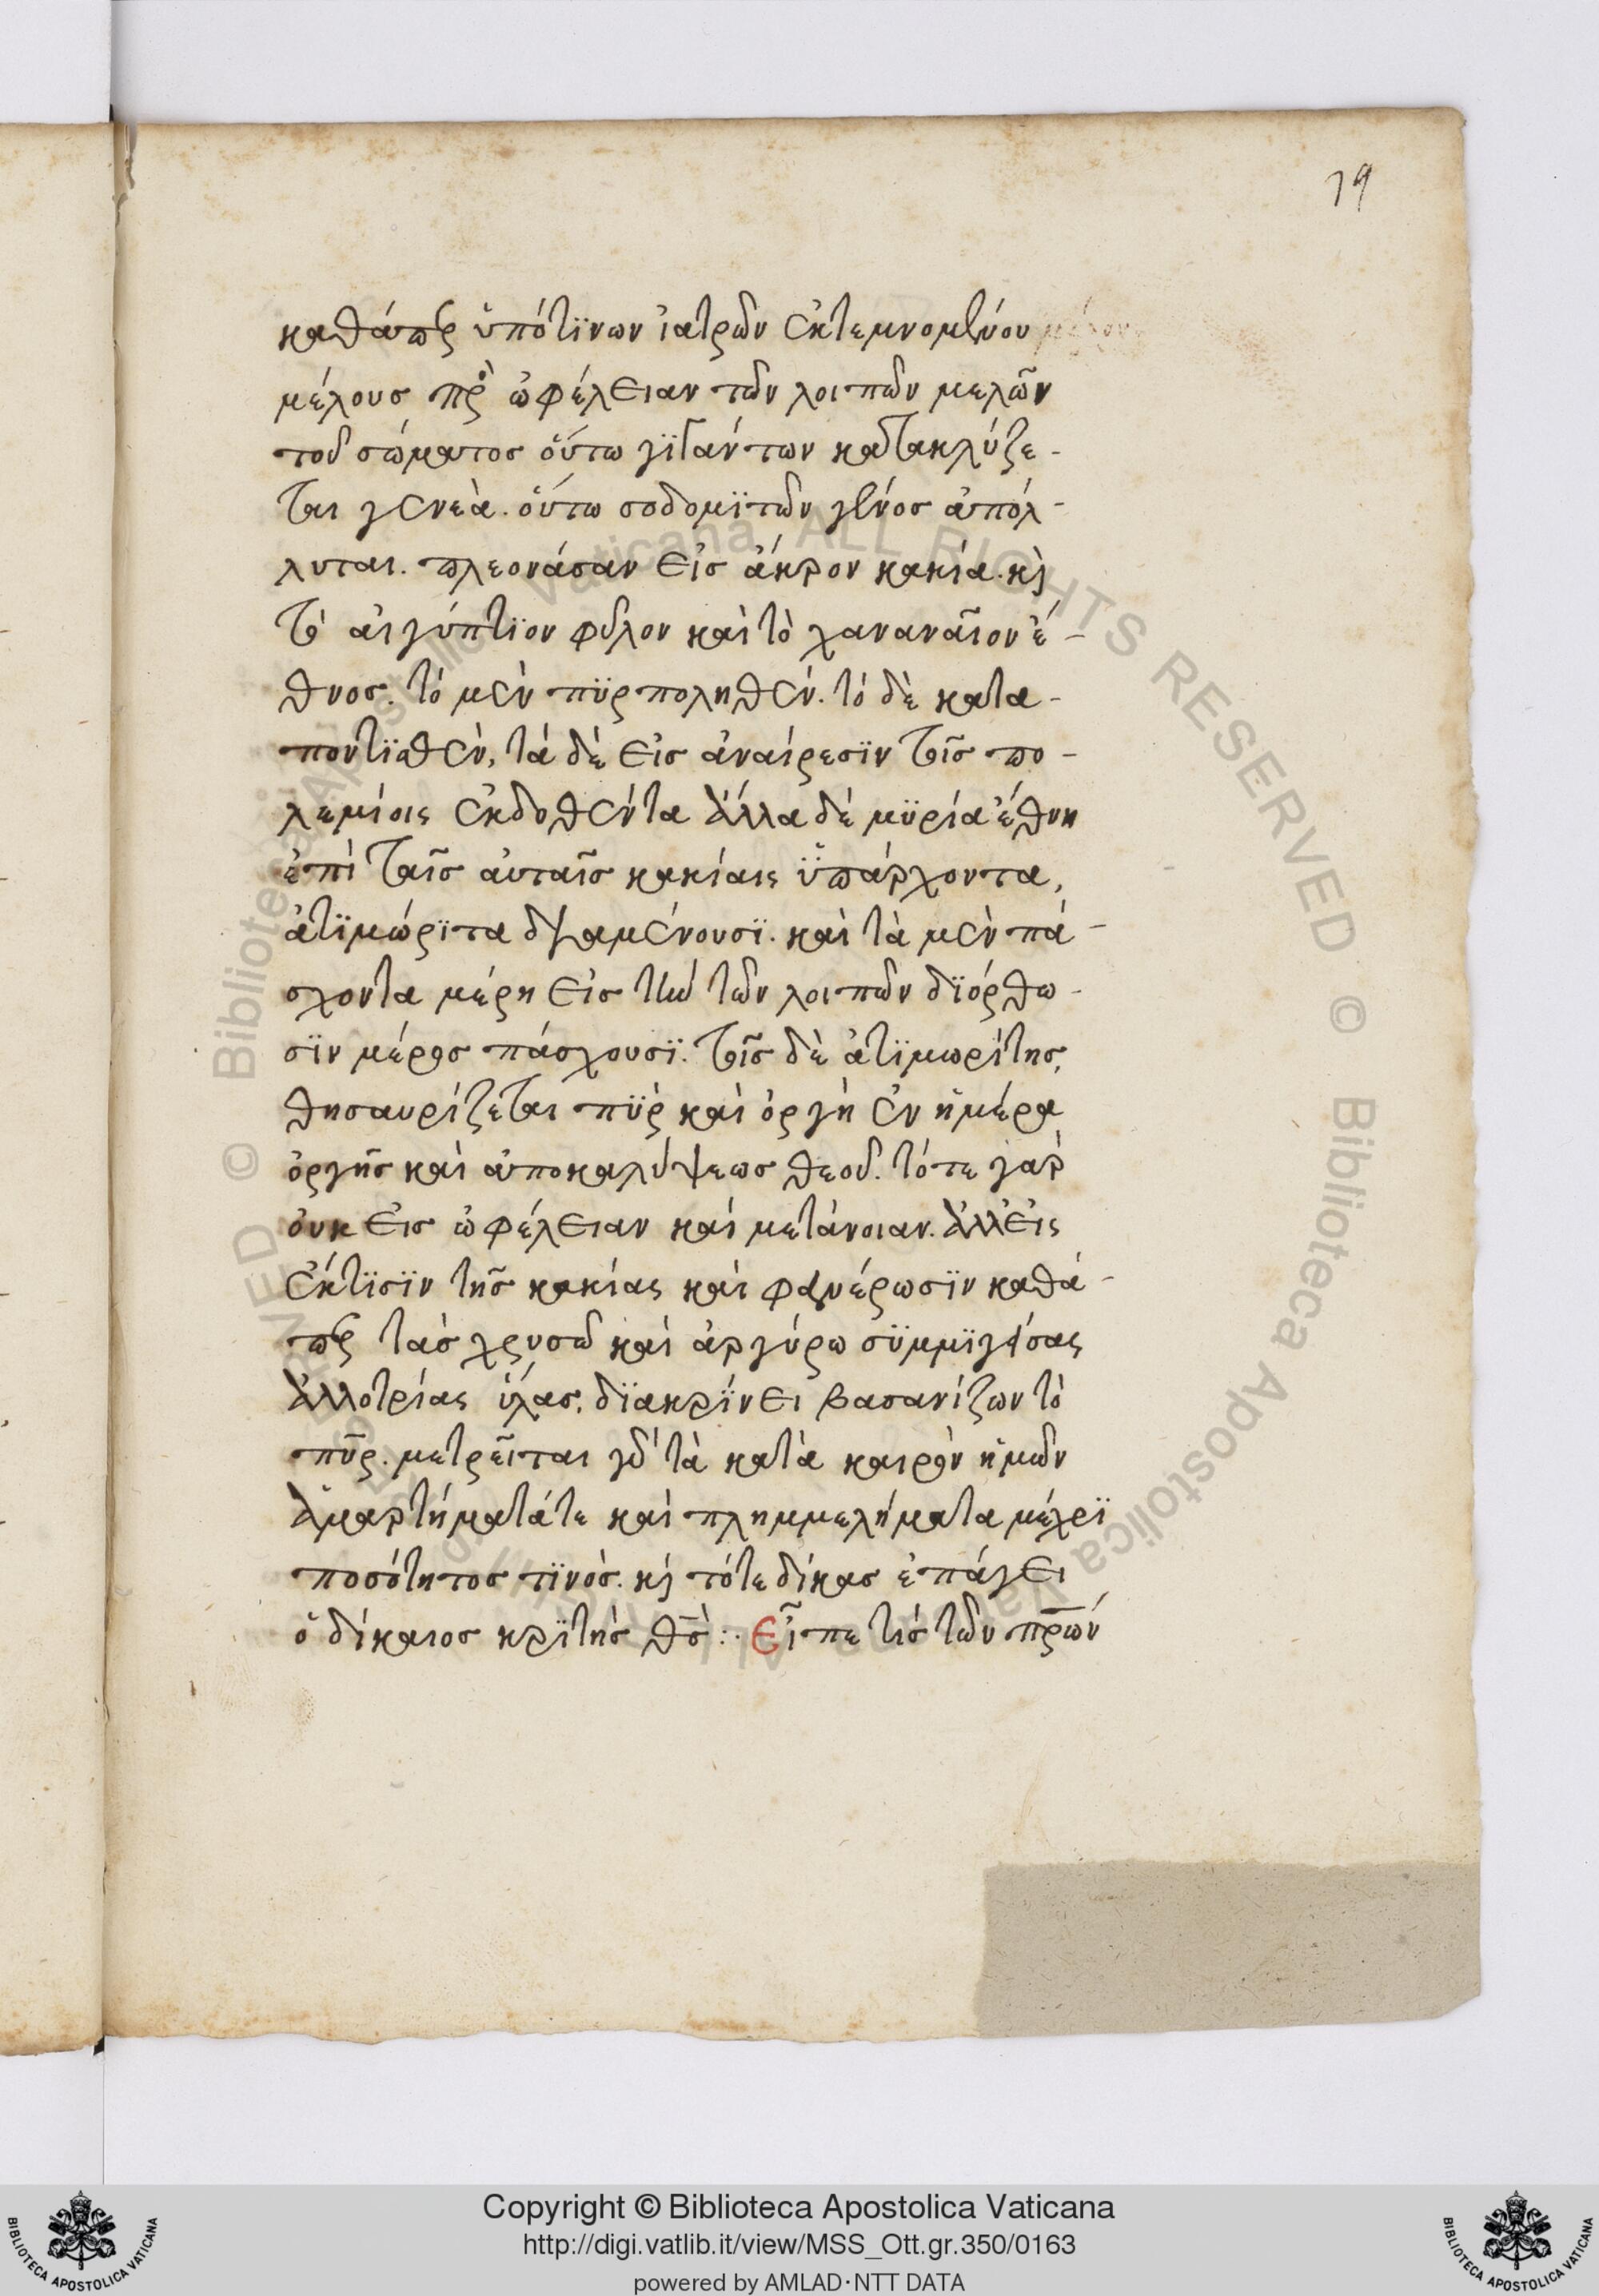 79
καθάπερ ὑπότϊνων ἰατρῶν ἐκτεμνομένου
μέλους πρὸς ὠφέλειαν τῶν λοιπῶν μελῶν
τοῦ σώματος οὕτω γϊγάντων κατακλύζε-
ται γενεὰ. οὕτω σοδομϊτῶν γένος ἀπόλ-
λυται. πλεονάσαν εἰς ἄκρον κακία. κὶ
τὸ αἰγύπτϊον φῦλον καὶ τὸ χανανᾶιον ἔ-
θνος. τό μὲν πϋρποληθέν. τό δὲ κατα-
ποντϊσθὲν, τά δὲ εἰς ἀναίρεσϊν τοῖς πο-
λεμίοις ἐκδοθέντα ἄλλα δέ μϋρία ἔθνη
ἐπὶ ταῖς αὐταῖς κακίαις ϋπάρχοντα,
ἀτϊμώρϊτα δϊαμένουσϊ. καὶ τὰ μὲν πά-
σχοντα μέρη εἰς τὴν τῶν λοιπῶν δϊόρθω-
σϊν μέρος πάσχουσϊ. τοῖς δὲ ἀτϊμωρίτης,
θησαυρίζεται πϋρ καὶ ὀργὴ ἐν ἡμέρα
ὀργῆς καὶ ἀποκαλύψεως θεοῦ. τότε γαρ
ὀυκ εἰς ὠφέλειαν καὶ μετάνοιαν. ἀλλ εἰς
ἔκτϊσϊν τῆς κακίας καὶ φανέρωσϊν καθά-
περ τὰς χρυσῶ καὶ ἀργύρω σϋμμϊγείσας
ἀλλοτρίας ὕλας, δϊακρϊνει βασανίζων τὸ
πῦρ. μετρεῖται γὰρ τὰ κατὰ καιρὸν ἡμῶν
ἁμαρτήματάτε καὶ πλημμελήματα μέχρϊ
ποσότητος τϊνὸς. κὶ τότε δίκας ἐπάγει
ὁ δίκαιος κρϊτὴς θς̅ :· εἶπε τὶς τῶν πρω̅ν
Copyright © Biblioteca Apostolica Vaticana
http://digi.vatlib.it/view/MSS_Ott.gr.350/0163
powered by AMLAD·NTT DATA